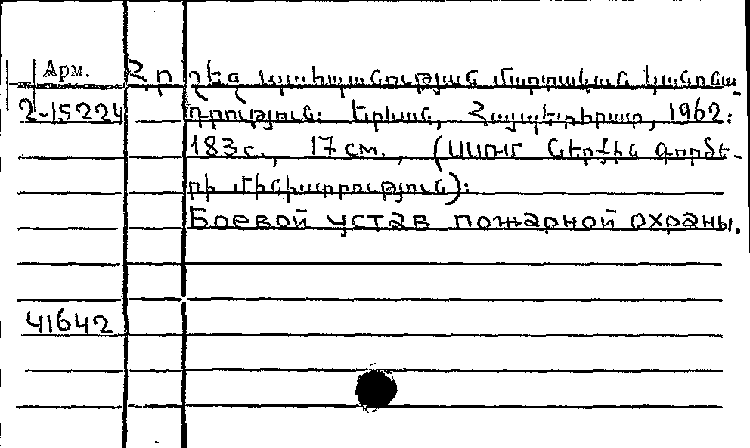 Арм.
2-15224
Հրդեհ պահպանության մարտական կանոնա-
դրություն: Երևան, Հայպետհրատ, 1962:
183 с., 17 см., (ՍՍՌՄ Ներքին գործե-
րի մինիստրություն):
Боевой устав пожарной охраны.
41642